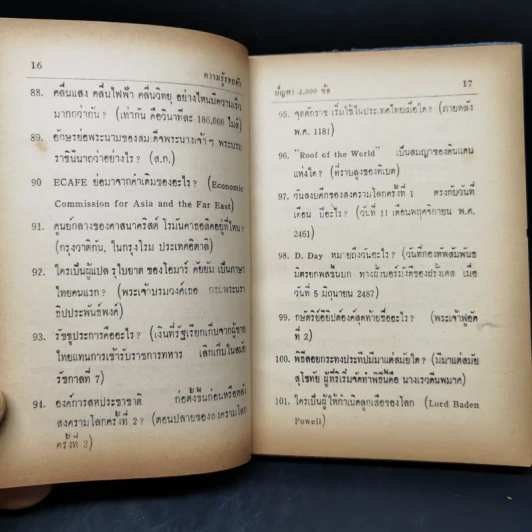 16
ความรู้รอบตัว
88. คลื่นแสง คลื่นไฟฟ้า คลื่นวิทยุ อย่างไหนมีความเร็ว
มากกว่ากัน? (เท่ากัน คือวินาทีละ 186,000 ไมล์)
89. อักษรย่อพระนามของสมเด็จพระนางเจ้า ฯ พระบรม
ราชินีนาถว่าอย่างไร? (ส.ก.)
90 ECAFE ย่อมาจากคำเดิมของอะไร? (Economic
Commission for Asia and the Far East)
91. ศูนย์กลางของศาสนาคริสต์ โรมันคาธอลิคอยู่ที่ไหน?
(กรุงวาติกัน, ในกรุงโรม ประเทศอิตาลี)
92. ใครเป็นผู้แปล รุไบยาต ของโอมาร์ คัยยัม เป็นภาษา
ไทยคนแรก? (พระเจ้าบรมวงศ์เธอ กรมพระนรา
ธิปประพันธ์พงศ์)
93. รัชชูปการคืออะไร? (เงินที่รัฐเรียกเก็บจากผู้ชาย
ไทยแทนการเข้ารับราชการทหาร เลิกเก็บในสมัย
รัชกาลที่ 7)
94. องค์การสหประชาชาติ ก่อตั้งขึ้นก่อนหรือหลัง
สงครามโลกครั้งที่ 2? (ตอนปลายของสงครามโลก
ครั้งที่ 2)
ปัญหา 2,000 ข้อ
17
95. จุลศักราช เริ่มใช้ในประเทศไทยเมื่อใด? (ภายหลัง
พ.ศ. 1181)
96. "Roof of the World" เป็นสมญาของดินแดน
แห่งใด? (ที่ราบสูงของทิเบต)
97. วันสงบศึกของสงครามโลกครั้งที่ 1 ตรงกับวันที่
เดือน ปีอะไร? (วันที่ 11 เดือนพฤศจิกายน พ.ศ.
2461)
98. D. Day หมายถึงวันอะไร? (วันที่กองทัพสัมพันธ
มิตรยกพลขึ้นบก ทางฝั่งนอร์มังดีของฝรั่งเศส เมื่อ
วันที่ 5 มิถุนายน 2487)
99. กษัตริย์อียิปต์องค์สุดท้ายชื่ออะไร? (พระเจ้าฟูอัด
ที่ 2)
100. พิธีลอยกระทงประทีปมีมาแต่สมัยใด? (มีมาแต่สมัย
สุโขทัย ผู้ที่ริเริ่มจัดทำพิธีนี้คือ นางเรวดีนพมาศ)
101. ใครเป็นผู้ให้กำเนิดลูกเสือของโลก (Lord Baden
Powell)